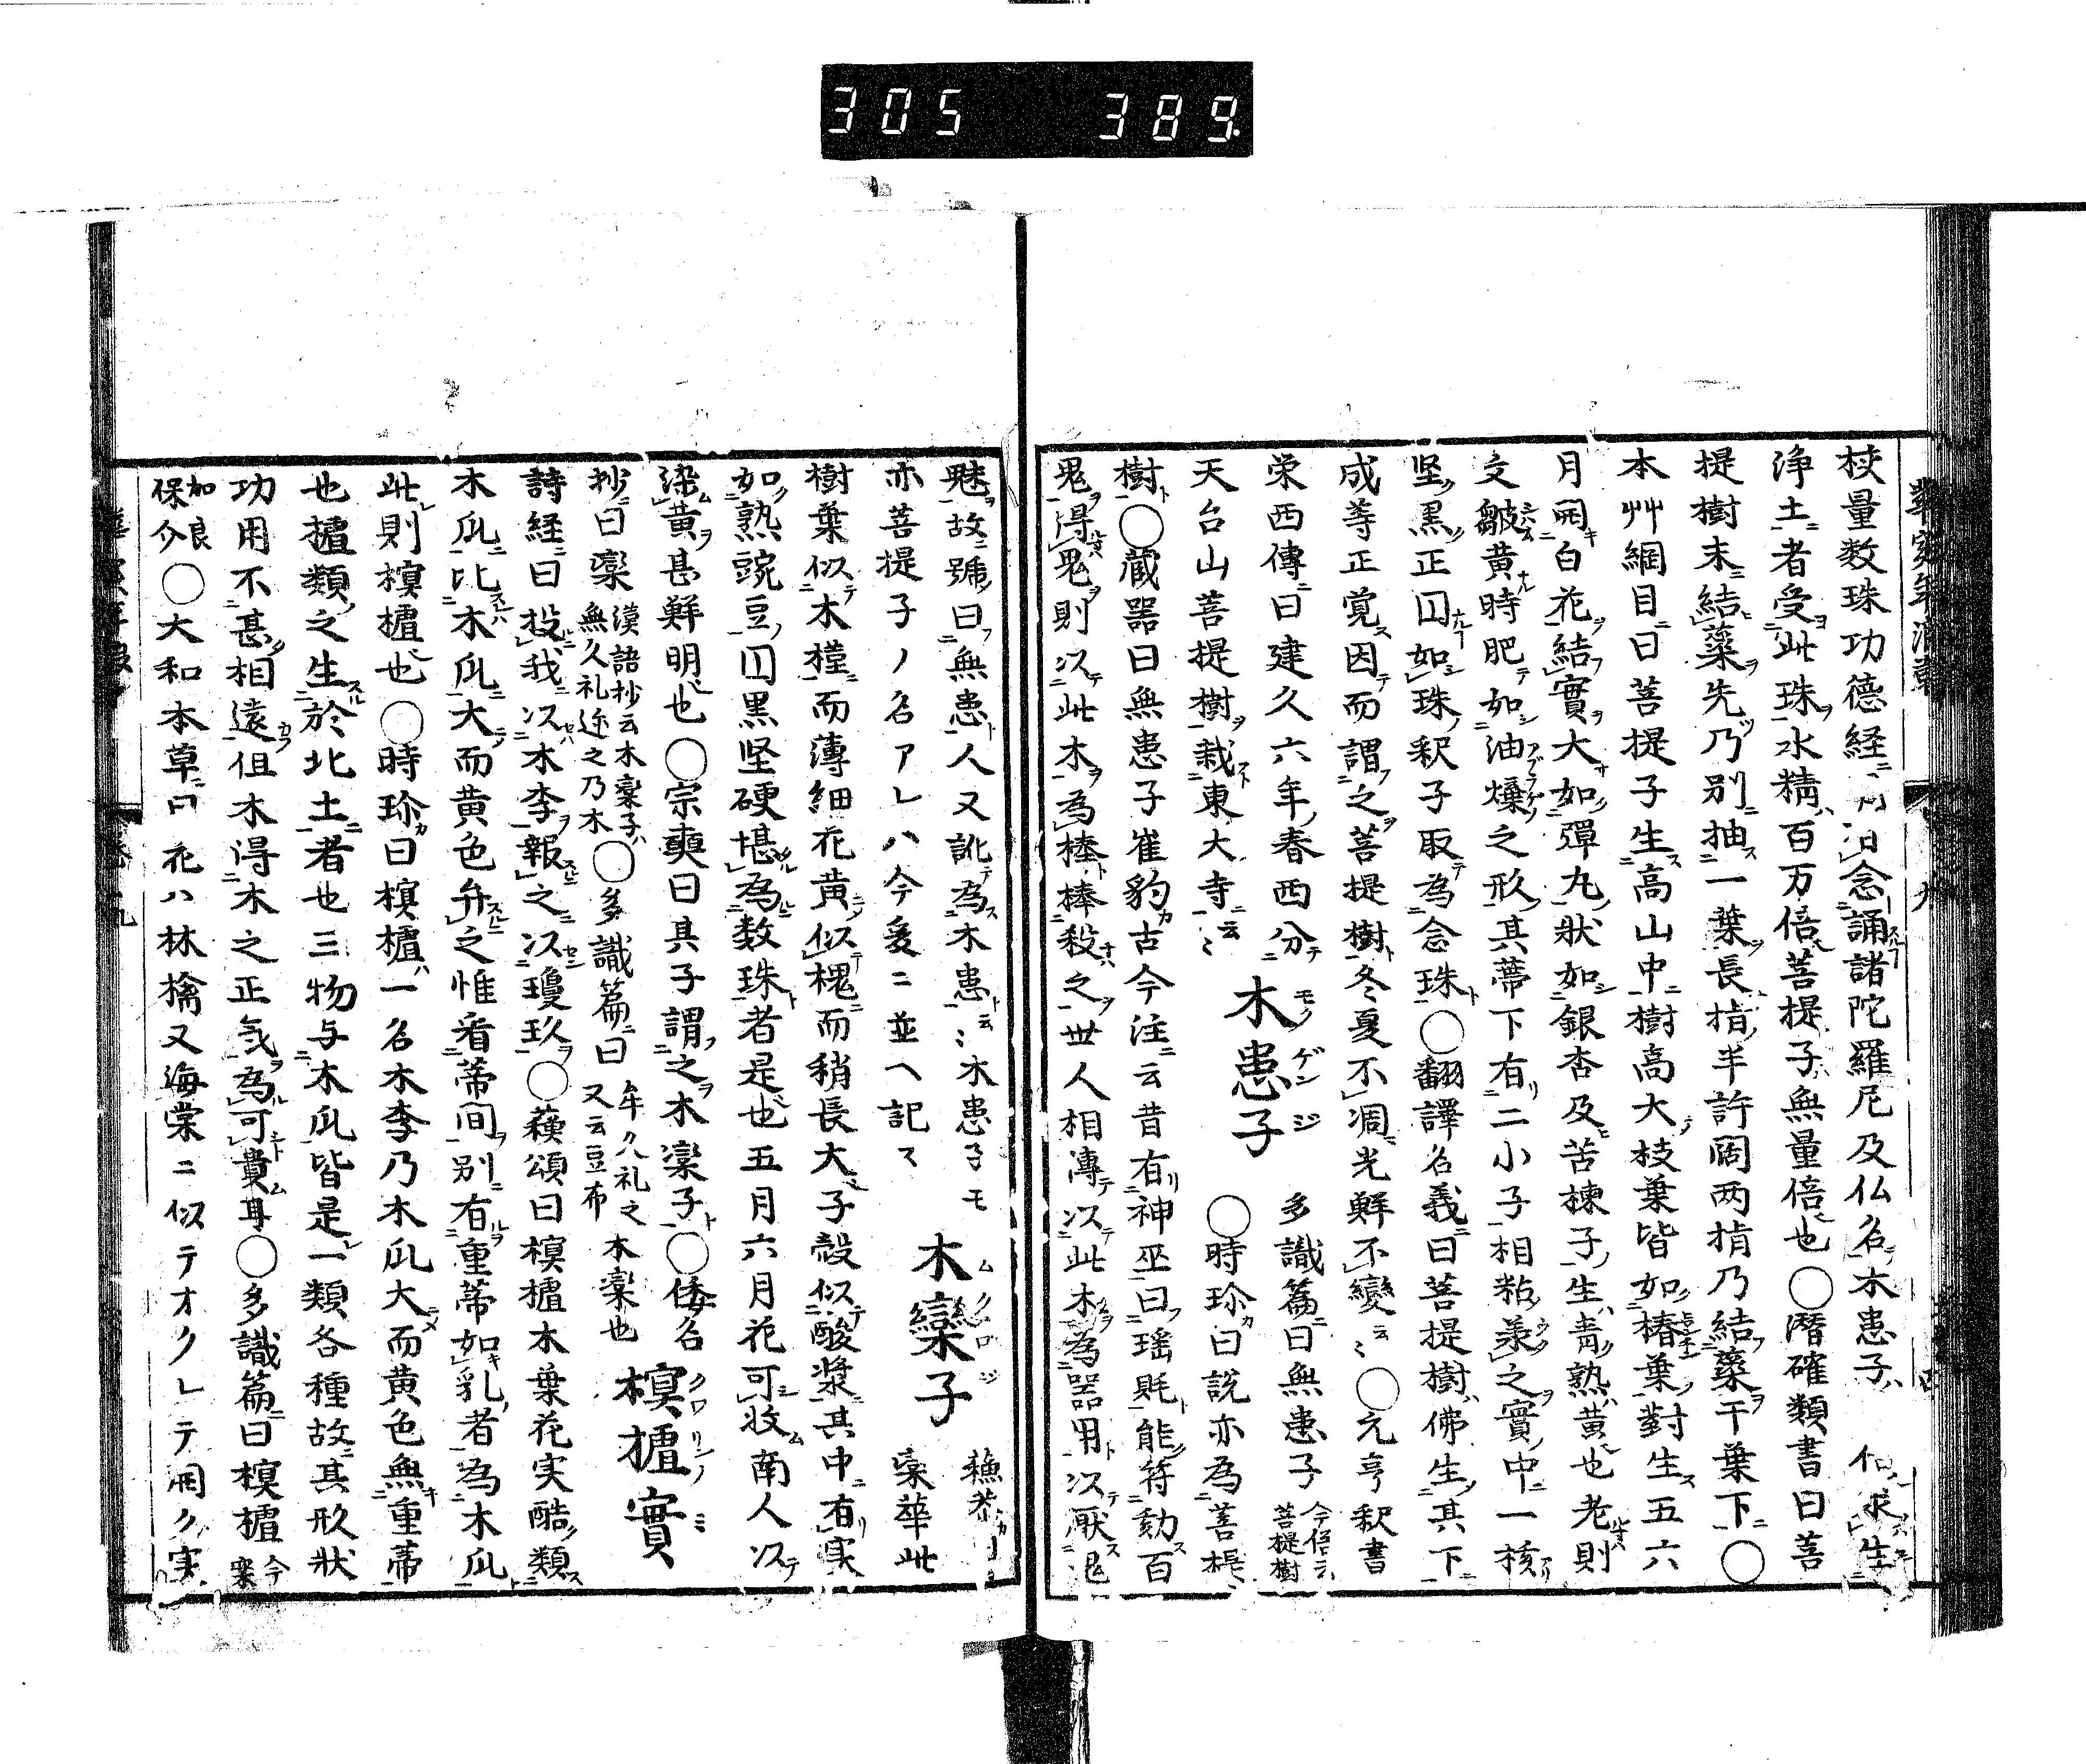 305 389
校量数珠功德経ニ 念誦諸陀羅尼及仏名木患子 求生
浄土者受此珠水精百万倍菩提子無量倍也○潛確類書曰菩
提樹末結蘂先乃別抽一葉長指半許闊两指乃結蘂干葉下○
本艸綱目曰菩提子生高山中樹高大枝葉皆如椿葉對生五六
月開白花結實大如彈丸狀如銀杏及苦棟子生青熟黄也老則
文皺黄時肥如油爍之形其蒂下有二小子相粘羕之實中一核
坚黒正囗如珠釈子取為念珠○翻譯名義曰菩提樹佛生其下
成等正覚因而謂之菩提樹冬夏不凋光鮮不變云〻○元亨釈書
栄西傳曰建久六年春西分
天台山菩提樹栽東大寺云〻
木患子
モノゲンジ
多識篇曰無患子 今俗云菩提樹
○時珍曰説亦為菩提
樹○蔵器曰無患子崔豹古今注云昔有神巫曰瑶眊能符劾百
鬼得鬼則以此木為棒棒殺之世人相傳以此木為器用以厭鬼
魅故號曰無患人又訛為木患云〻木患子モ
亦菩提子ノ名アレハ今爰ニ並ヘ記ス
木欒子
ムクロジ
蘓恭曰欒華此
樹葉似木槿而薄細花黄似槐而稍長大子殻似酸漿其中有実
如熟豌豆囗黒坚硬堪為数珠者是也五月六月花可收南人以
染黄甚鮮明也○宗奭曰其子謂之木欒子○倭名
抄曰欒 漢語抄云木欒子無久礼迩之乃木 ○多識篇曰 牟久礼之又云豆布 木欒也
榠樝實
クワリンノミ
詩経曰投我以木李報之以瓊玖○蘓頌曰榠樝木葉花実酷類
木瓜比木瓜大而黄色弁之惟看蒂间別有重蒂如乳者為木瓜
此則榠樝也○時珍曰榠樝一名木李乃木瓜大而黄色無重蒂
也樝類之生於北土者也三物与木瓜皆是一類各種故其形狀
功用不甚相遠但木得木之正気為可貴耳○多識篇曰榠樝 今案
加良保介○大和本草曰花ハ林檎又海棠ニ似テオクレテ開ク実